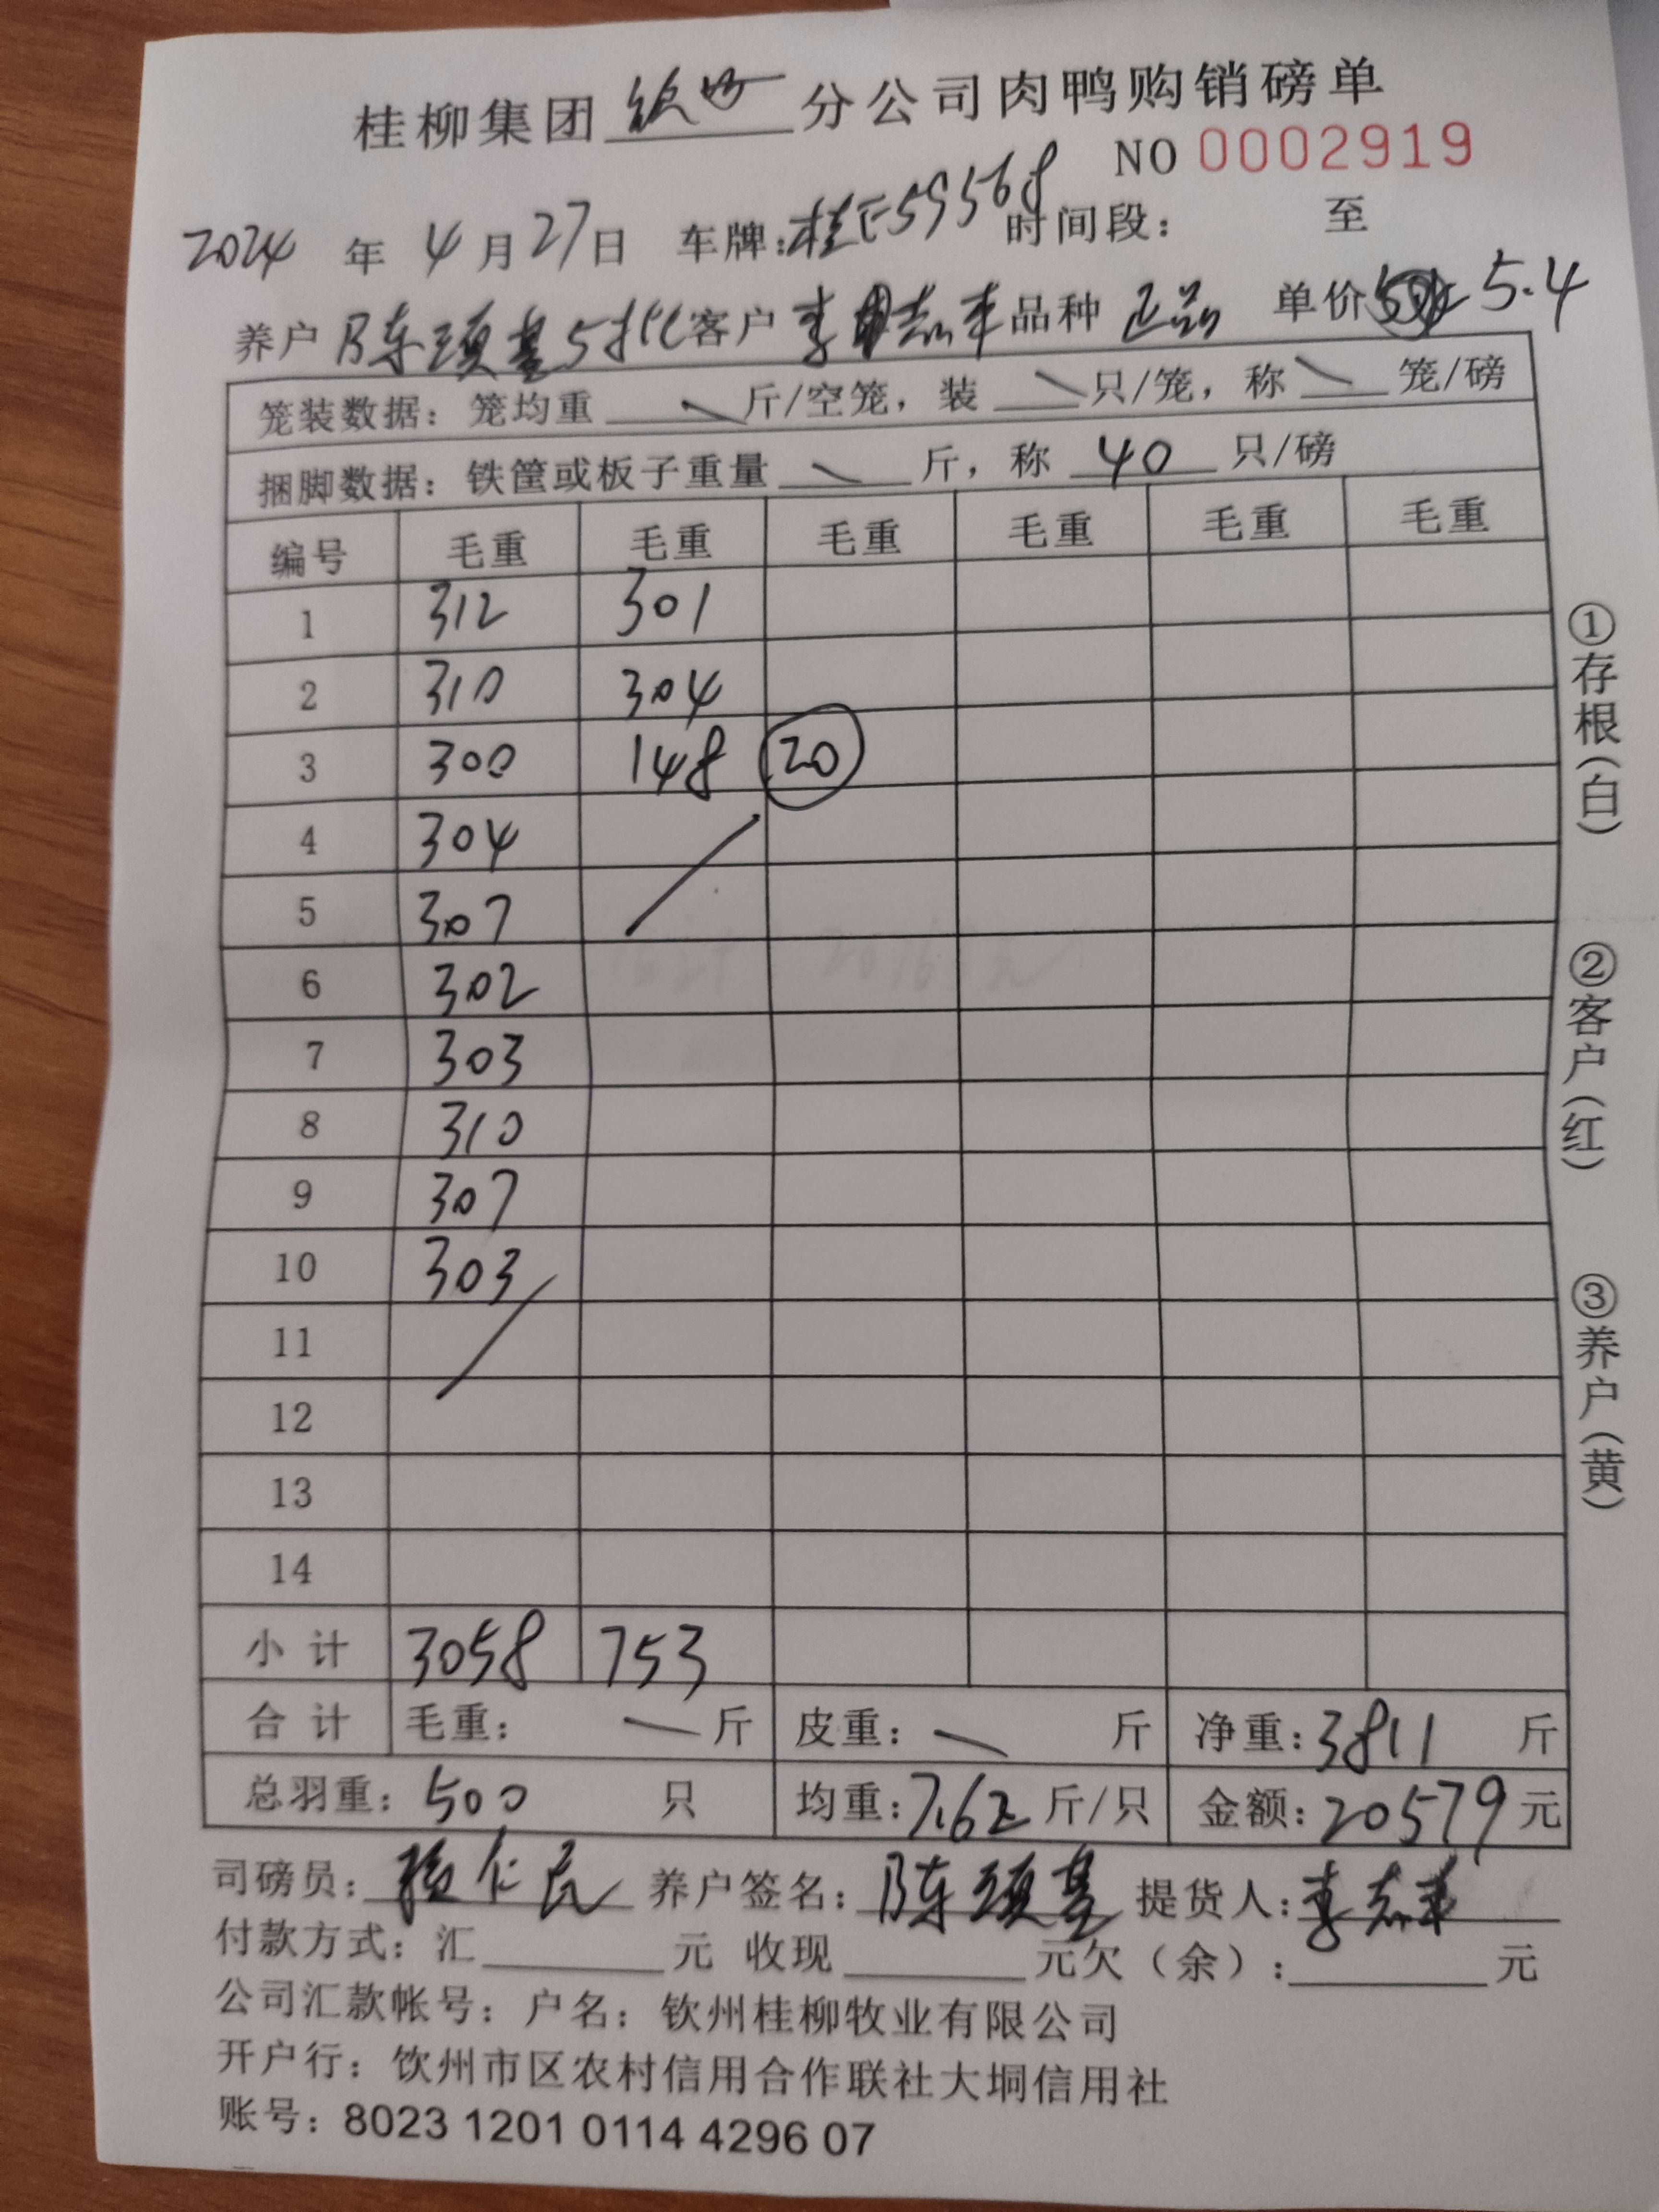 桂柳集团钦州分公司肉鸭购销磅单
NO 0002919
2024 年 4 月 27 日 车牌:桂E59568 时间段: 至
养户 陈颂基5批 客户 李志丰 品种 正品 单价 5.4
笼装数据: 笼均重 斤/空笼, 装 只/笼, 称 笼/磅
捆脚数据: 铁筐或板子重量 斤, 称 40 只/磅
编号 毛重 毛重 毛重 毛重 毛重 毛重
1 312 301
2 310 304
3 300 148 20
4 304
5 307
6 302
7 303
8 310
9 307
10 303
11
12
13
14
小计 3058 753
合计 毛重: 斤 皮重: 斤 净重: 3811 斤
总羽重: 500 只 均重: 7.62 斤/只 金额: 20579 元
司磅员: 养户签名: 陈颂基 提货人: 李志丰
付款方式: 汇 元 收现 元欠(余): 元
公司汇款帐号: 户名: 钦州桂柳牧业有限公司
开户行: 饮州市区农村信用合作联社大垌信用社
账号: 8023 1201 0114 4296 07
①存根(白)
②客户(红)
③养户(黄)